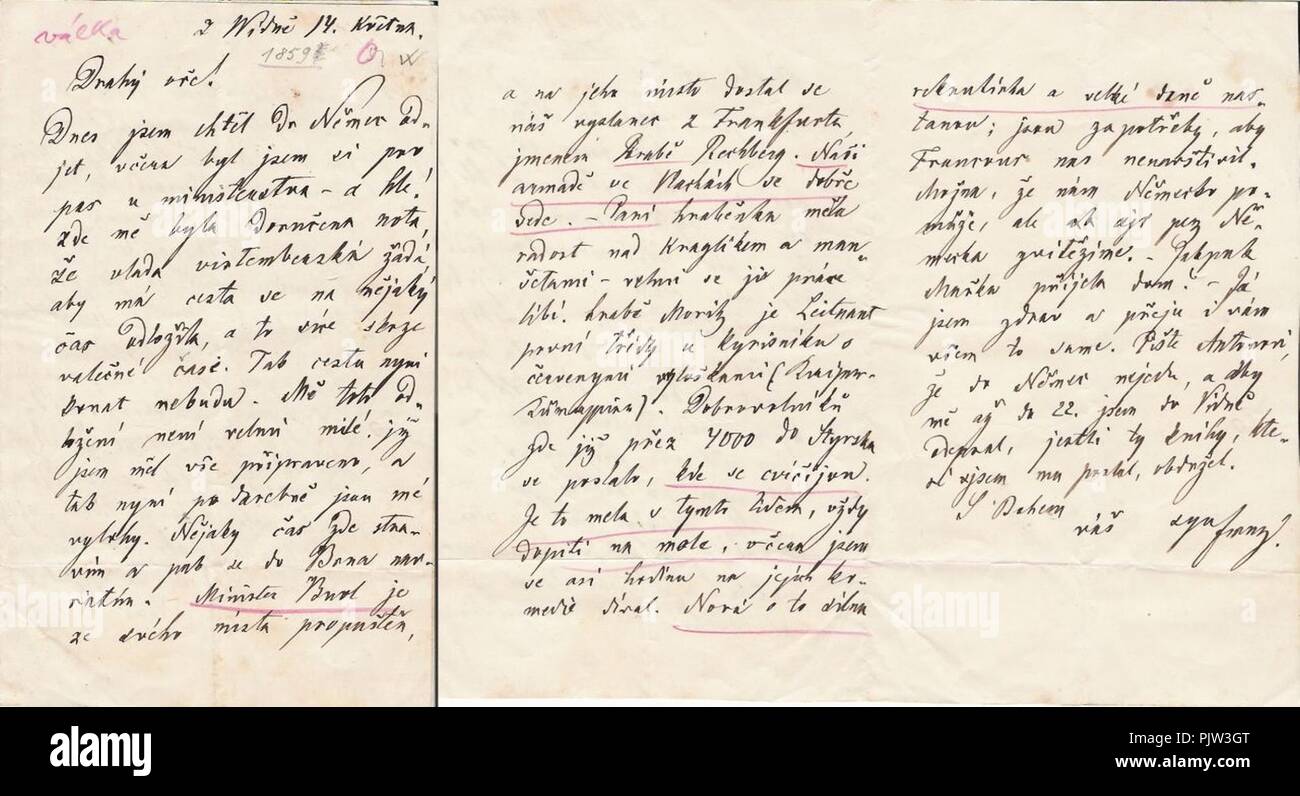 válka
z Vídně 14. Května.
1859
Drahý otče!
Dnes jsem chtěl do Němec od-
jet, včera byl jsem si pro
pas u ministerstva – a hle,
zde mě byla doručena nota,
že vláda virtemberská žádá,
aby má cesta se na nějaký
čas odložila, a to více skrze
válečné časé. Tak cestu nyní
konat nebudu. Mě toto od-
ložení není velmi milé. již
jsem měl vše připraveno, a
tak nyní po darebně jsou mé
výlohy. Nějaký čas zde strá-
vím a pak se do Brna nav-
rátím. Minister Buol je
ze svého místa propuštěn,
a na jeho místo dostal se
náš vyslanec z Frankfurta,
jmenem Hrabě Rechberg. Naší
armadě ve Vlachách se dobře
vede. – Paní hraběnka měla
radost nad Kraglíkem a man-
šetami – velmi se jí práce
líbí. hrabě Moritz je Leitnant
první třídy u kyrisníků s
červenými výloškami
Dobrovolníků
zde již přez 4000 do Styrska
se poslalo, kde se cvičijou.
Je to mela s tymto lidem, vždy
dopití na mole, včera jsem
se asi hodinu na jejich ko-
medie díval. Nová a to silná
rekrutírka a velké daně nas-
tanou; jsou zapotřeby, aby
Francous nas nenavštívil.
Možná, že nám Německo po-
může, ale ak ajs pez Ně-
mecka zvítězíme. – Jakpak
Mařka přijela domů? – Já
jsem zdráv a přeju i vám
všem to samé. Pište Antonovi,
že do Němec nejedu, a aby
mě až do 22. jsem do Vídně
odepsal, jestli ty knihy, kte-
ré jsem mu poslal, obdržel.
S Bohem
váš syn Franz.
alamy
Image ID: PJW3GT
www.alamy.com